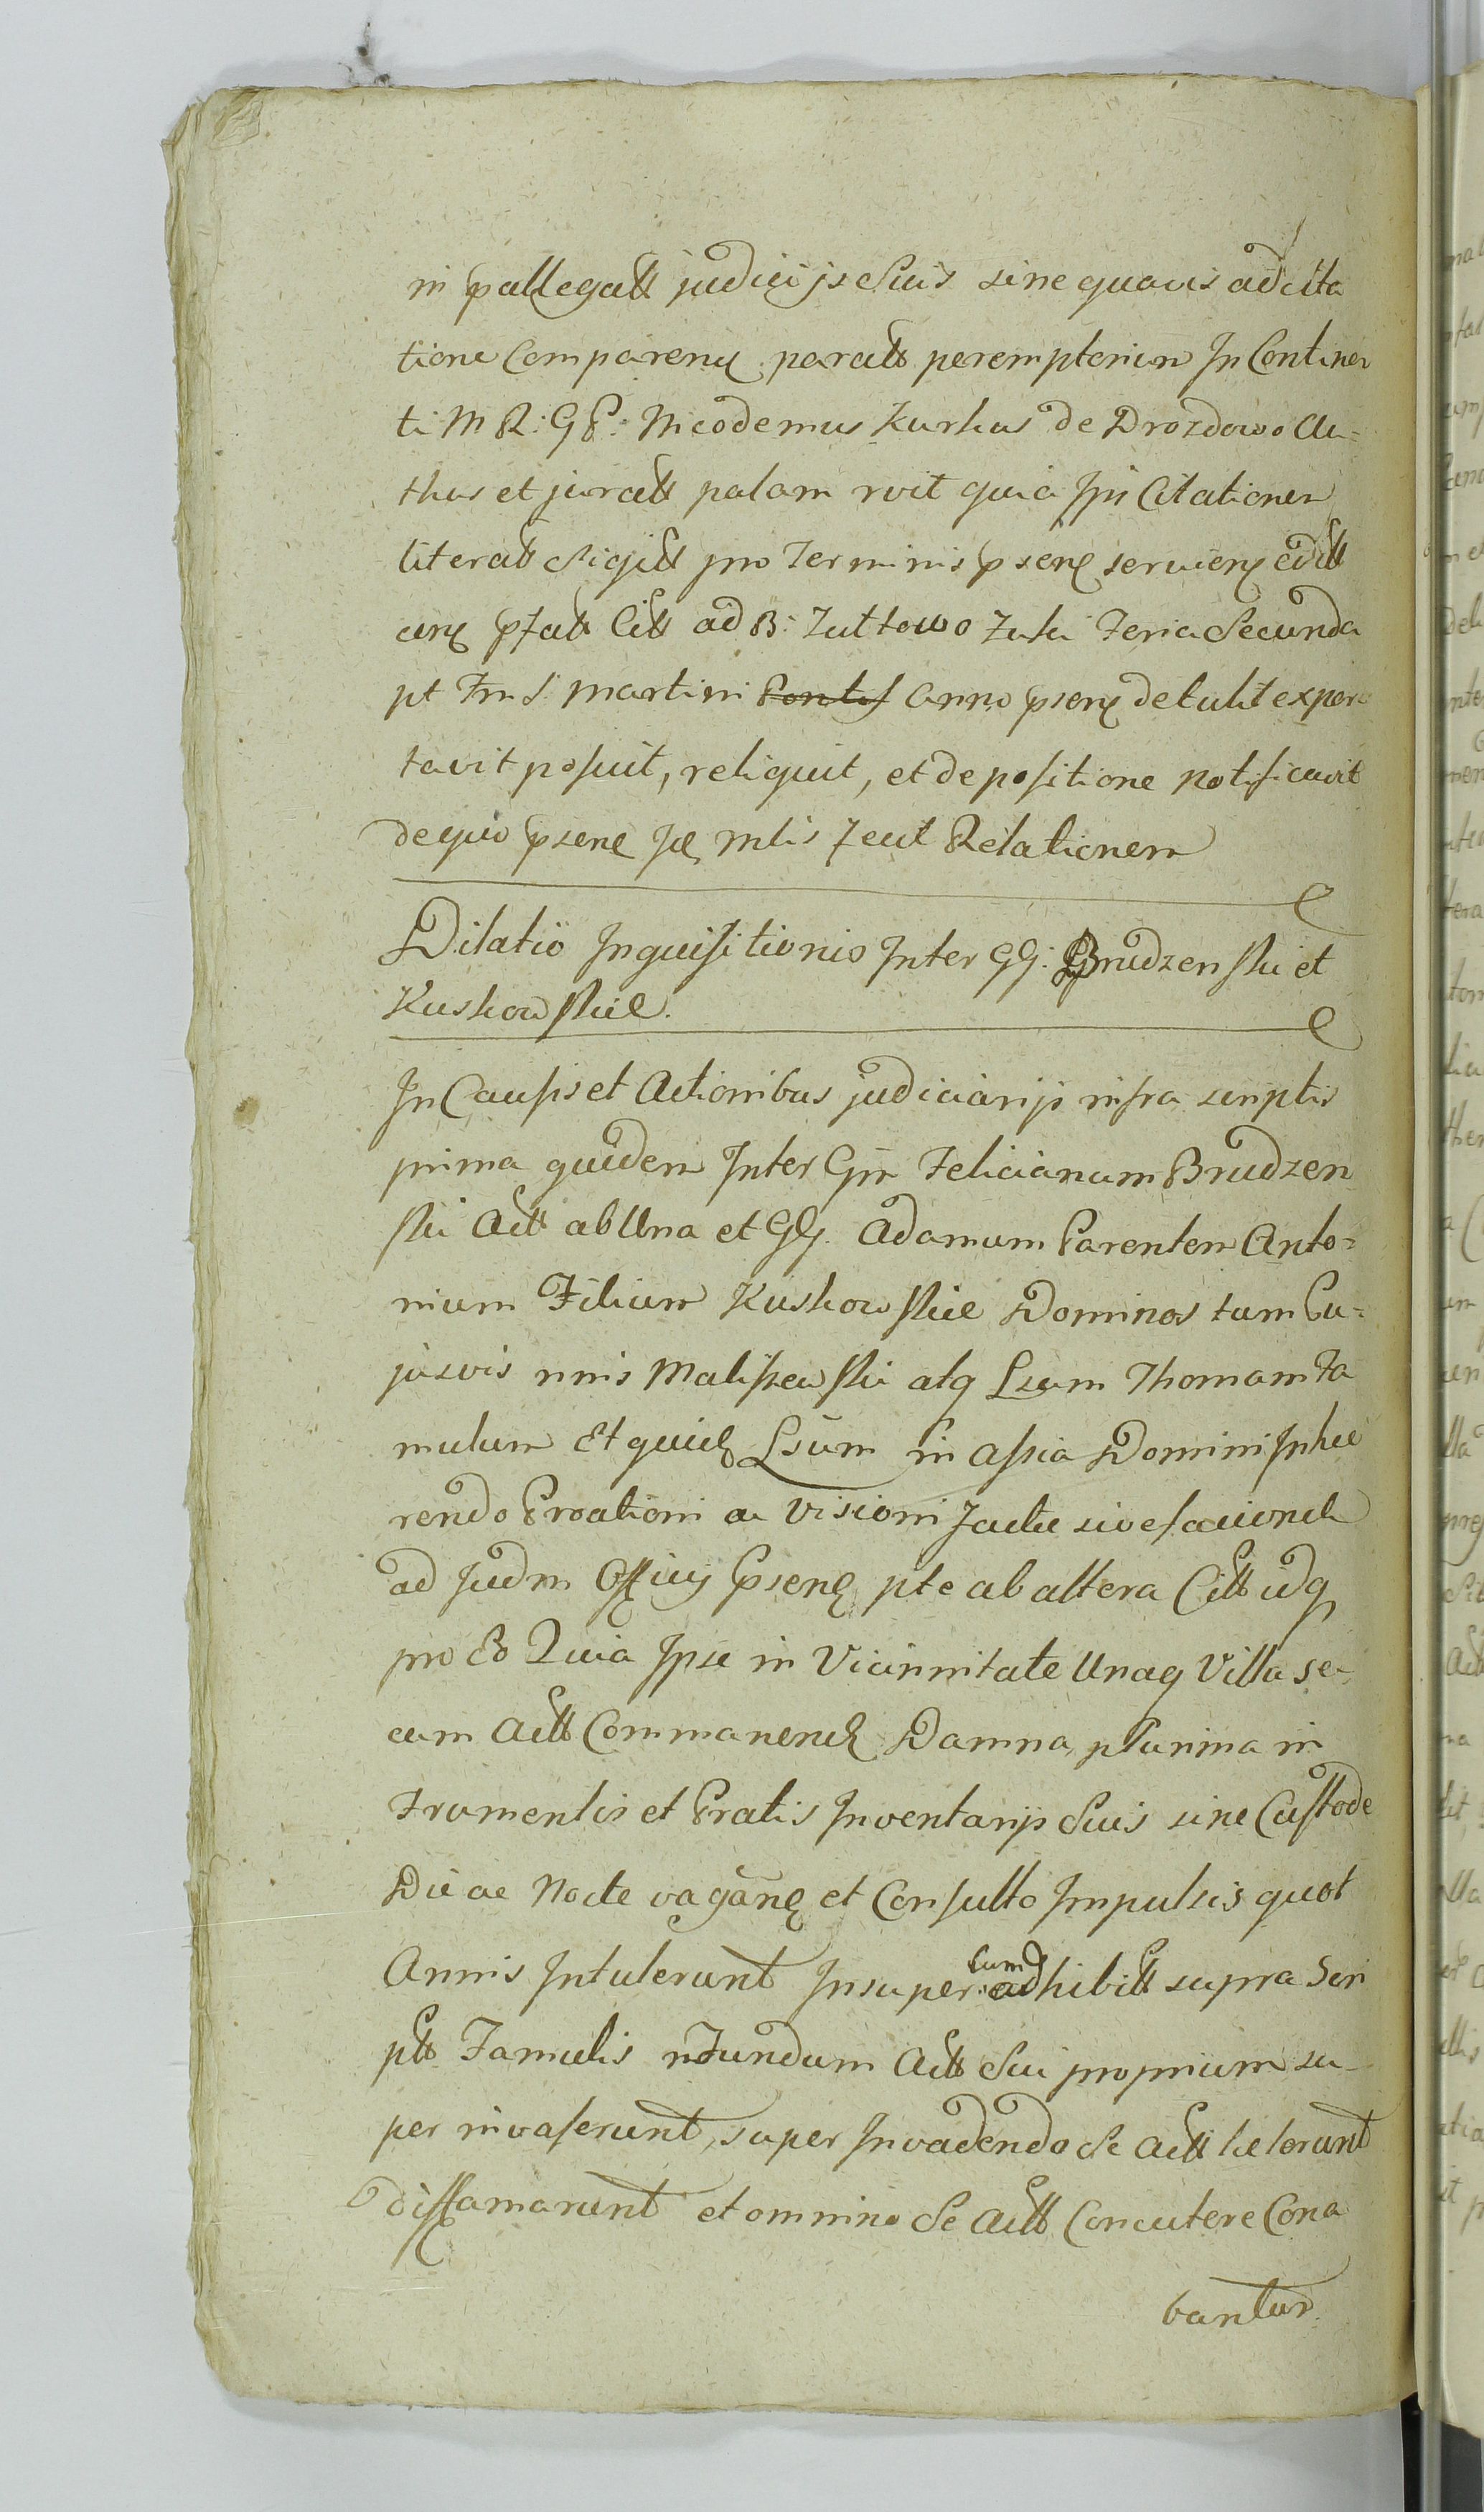 in pallegatt judicijs Suis sine quavis adcita
tione Comparenđ paratt peremptorium In Continen
ti M R: G P: Nicodemus Kurkus de Drozdowo Au-
thus et juratt palam rvit quia Ipse Citationem
literatt Sigitt pro Terminis psenđ servienđ editt
cunđ pfatt Citt ad B: Zuttowo Zuki Feria Secunda
pt Fm S. Martini Pontif Anno psenđ detulit expor
tavit posuit, reliquit, et depositione notificavit
de quo psenđ Juđ mlis fecit Relationem
Dilatio Inquisitionis Inter GG: Brudzenski et
Kuskowskie.
In Causis et Actionibus judiciarijs infra scriptis
prima quidem Inter Gm Felicianum Brudzen
ski Actt ab Una et GG. Adamum Parentem Anto-
nium Filium Kuskowskie Dominos tum Cu-
jusvis nnis Maliszewski atq Lsum Thomam Fa
mulum Et quidđ Lsum in assia Domini Inhæ
rendo Proationi ac visioni
ad Judm Officij Psenđ pte ab altera Citt idq
pro Eo Quia Ipse in Vicinnitate Unaq Villa se-
cum Actt Commanenđ Damna plurima in
Frumentis et Pratis Inventarijs Suis sine Custode
Die ac Nocte vaganđ et Consulto Impulsis quot
Annis Intulerunt Insuper cum adhibitt supra Scri
ptt Famulis in Fundum Actt Sui proprium su-
per invaserunt, super Invadendo Se Actt
diffamarunt et omnino Se Actt Concutere Cona
bantur